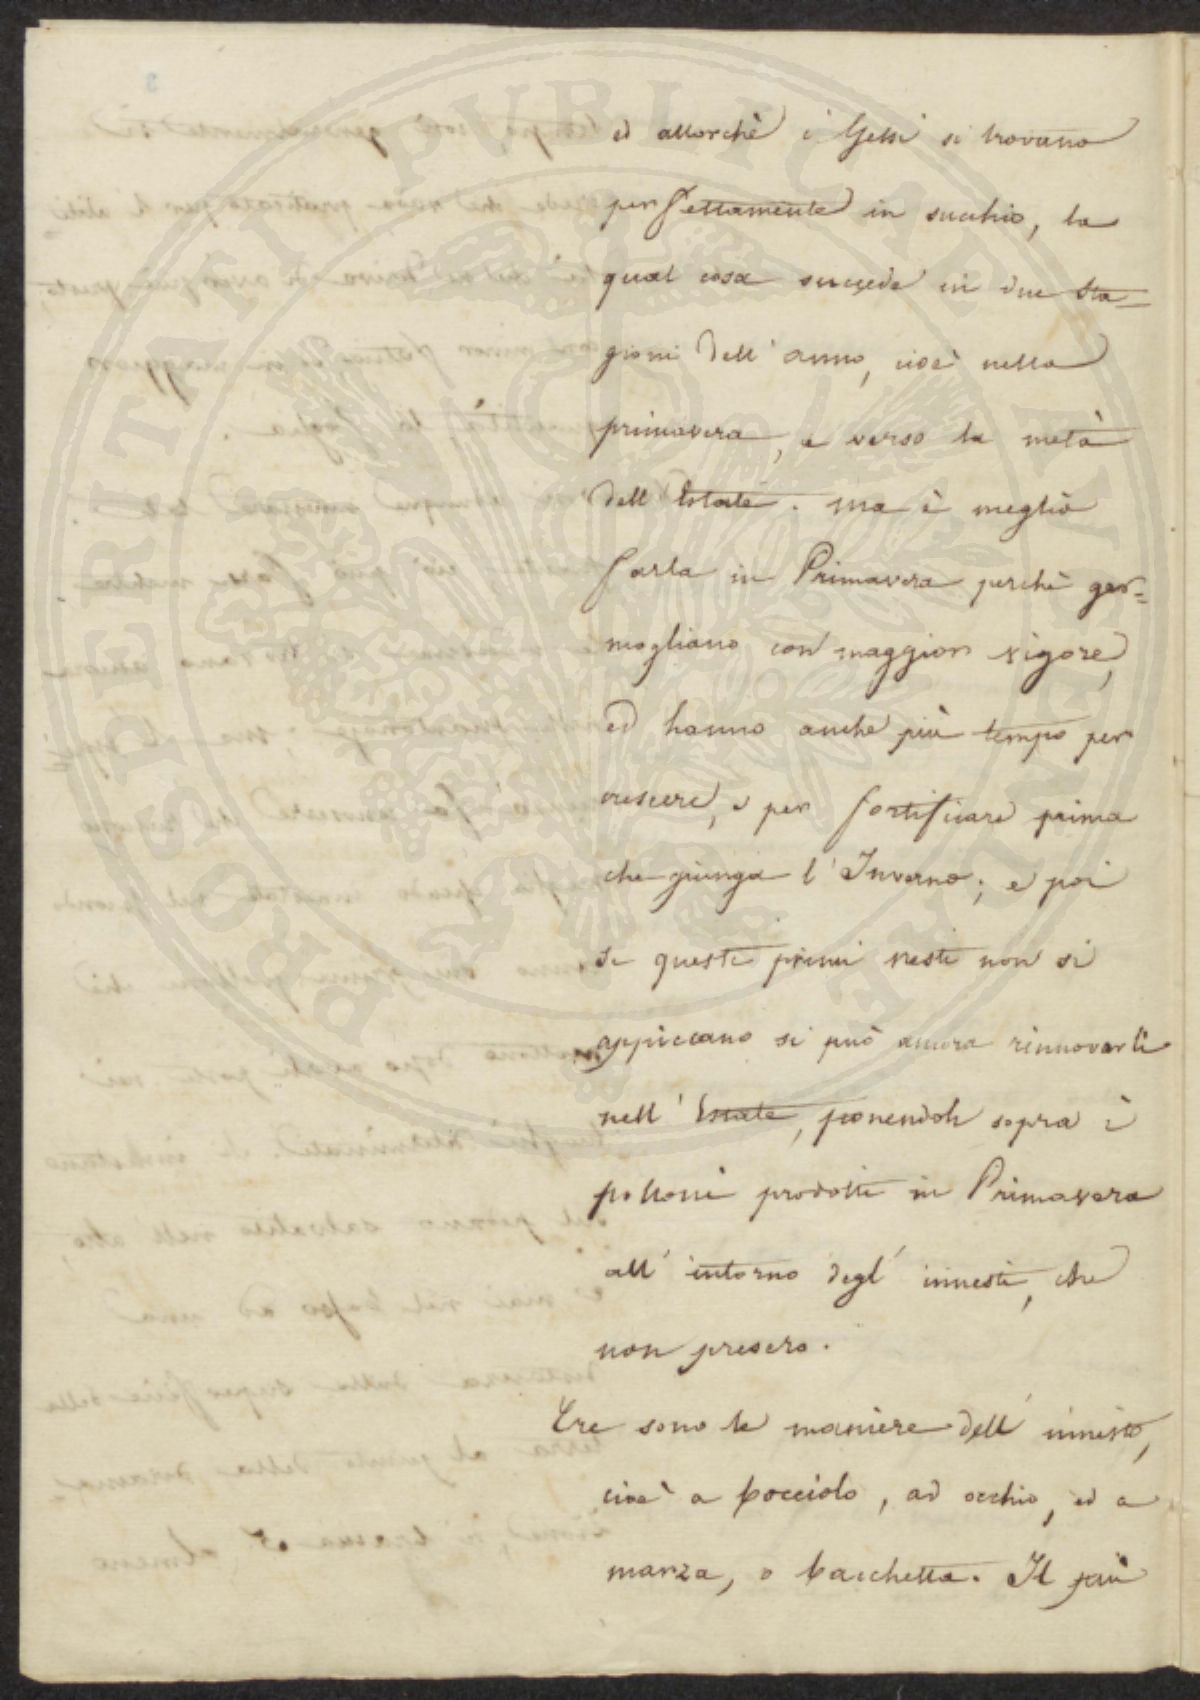 ed allorchè i Gelsi si trovano
perfettamente in succhio, la
qual cosa succede in due sta=
gioni dell' anno, cioè nella
primavera, e verso la metà
dell' Estate. ma è meglio
farla in Primavera perchè ger=
mogliano con maggior vigore,
ed hanno anche più tempo per
crescere, e per fortificare prima
che giunga l' Inverno; e poi
se questi primi nesti non si
appiccano si può ancora rinnovarli
nell' Estate, ponendoli sopra i
polloni prodotti in Primavera
all' intorno degl' innesti, che
non presero.
Tre sono le maniere dell' innesto,
cioè a bocciolo, ad occhio, ed a
marza, o bacchetta. Il più
PROSPERITATI PVBLICAE AVGENDAE